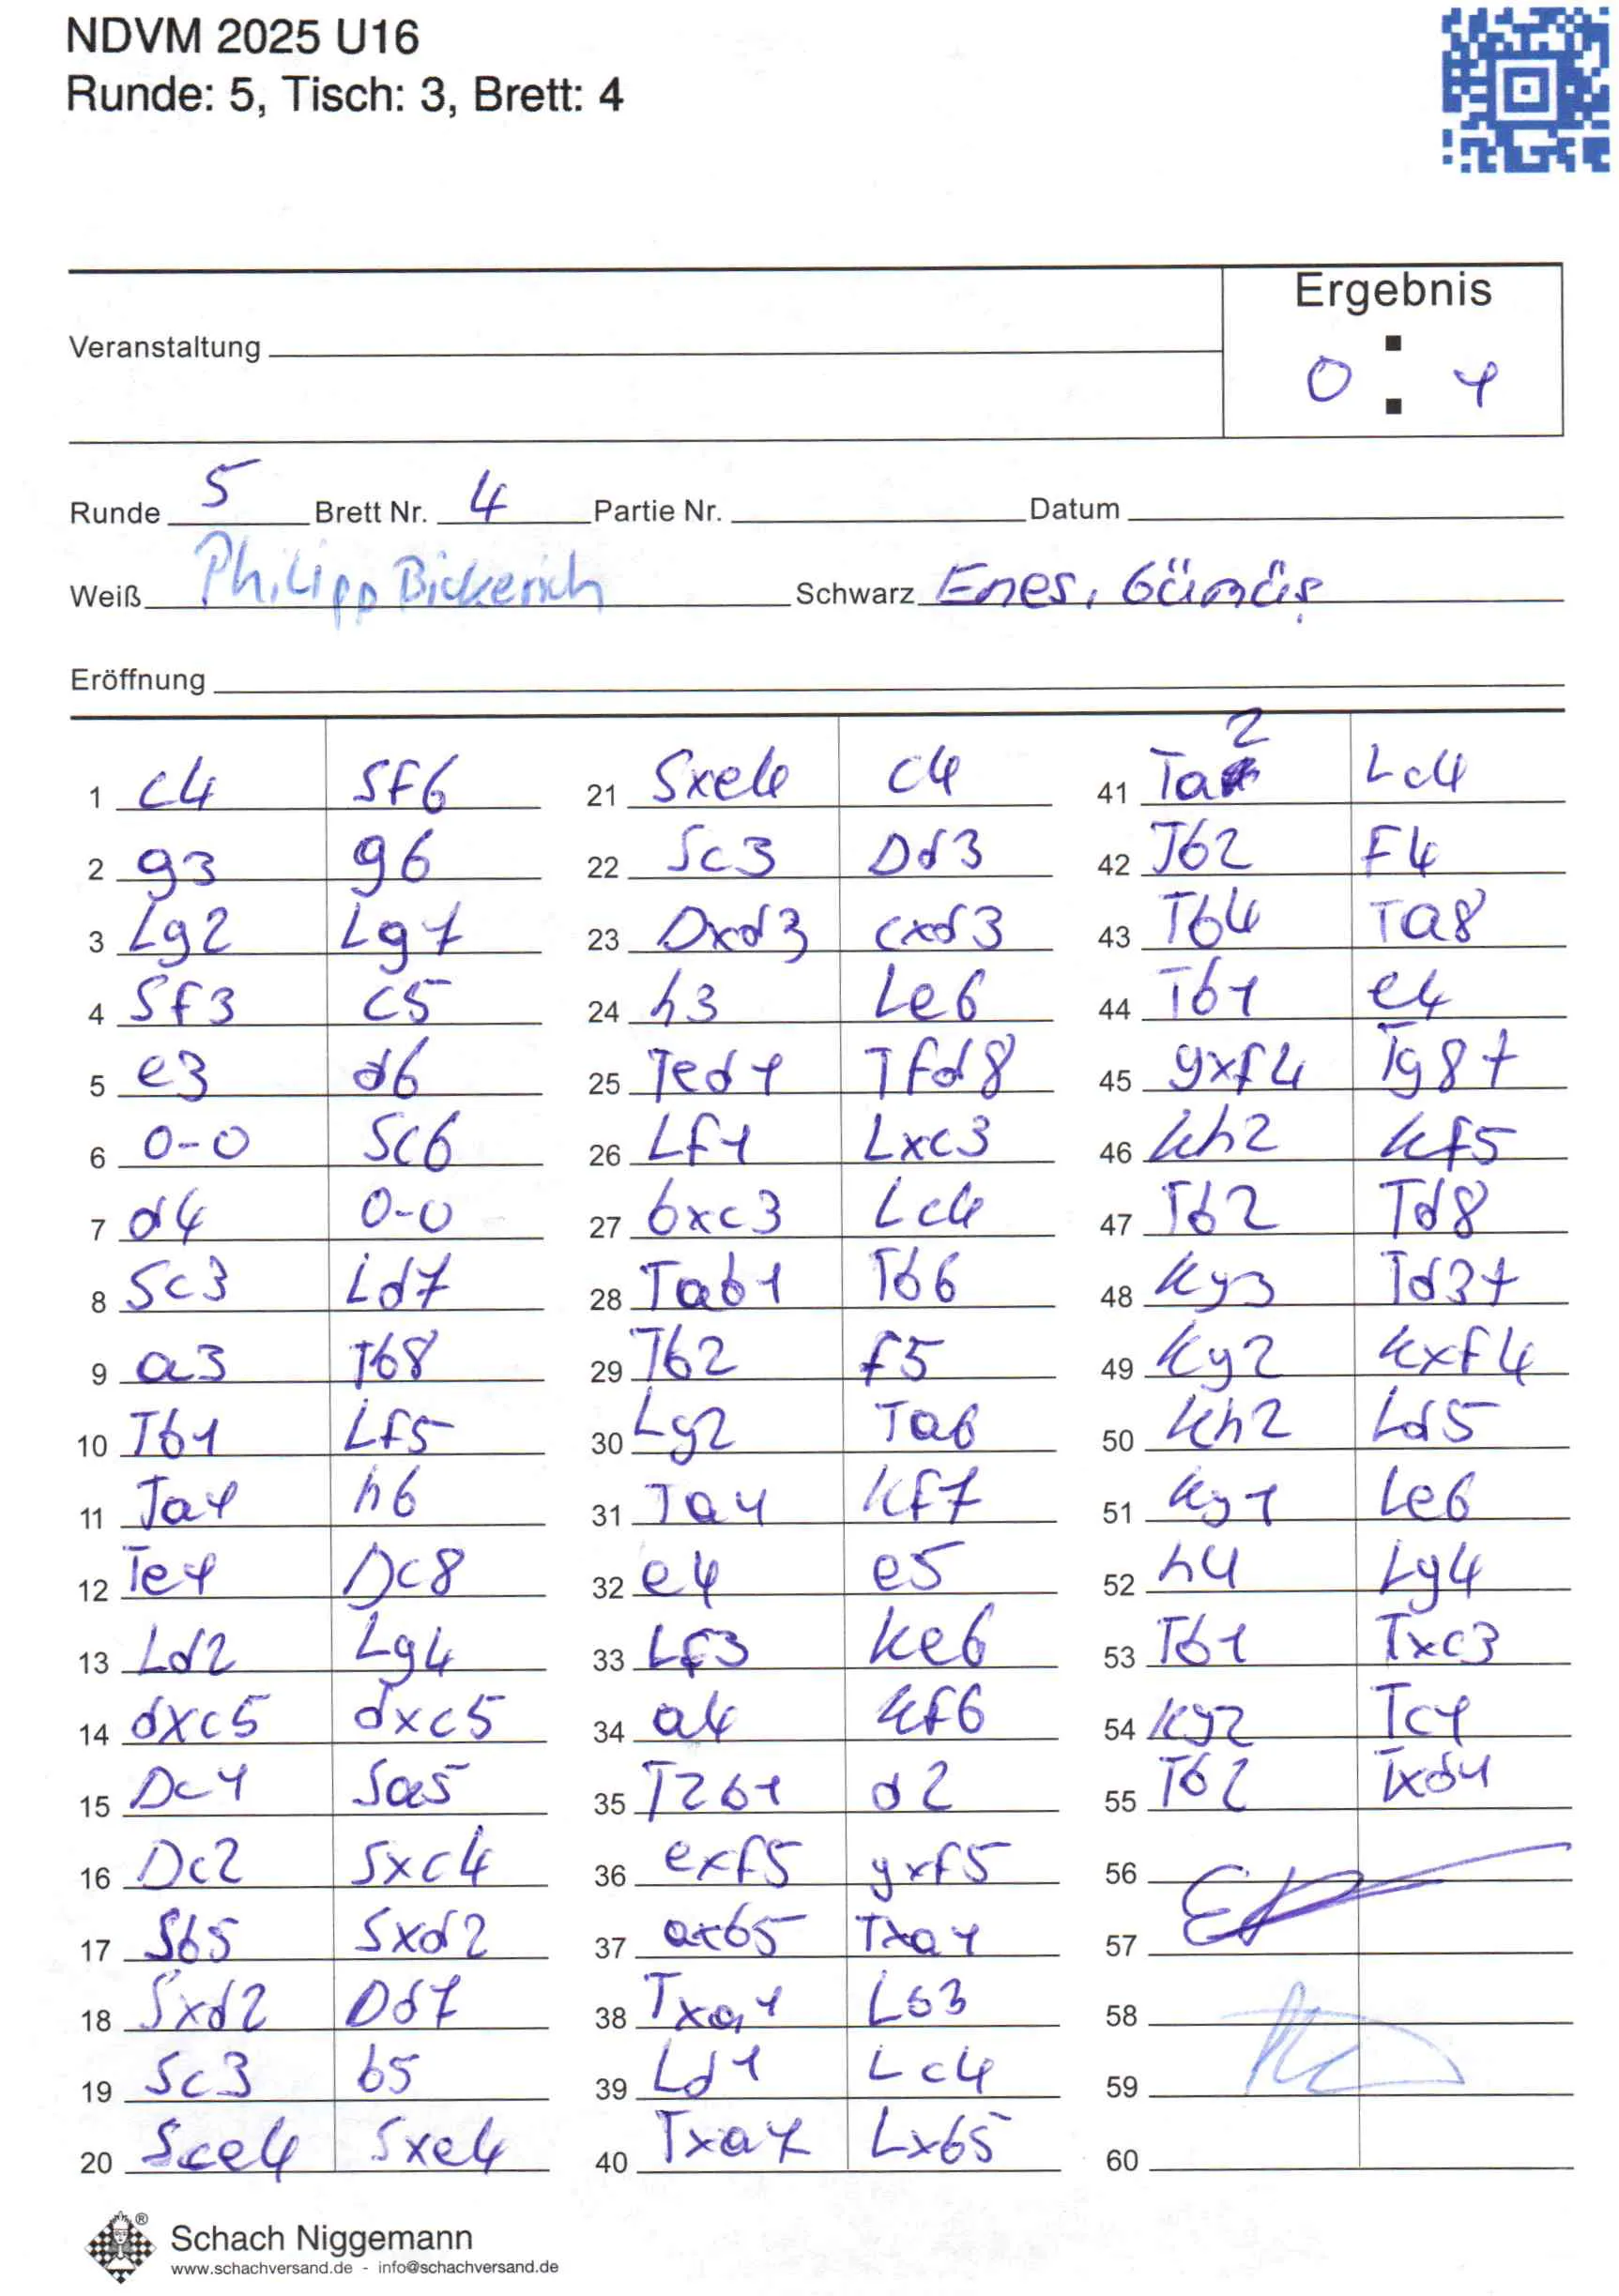 NDVM 2025 U16
Runde: 5, Tisch: 3, Brett: 4
Ergebnis
Veranstaltung
0 : 1
Runde 5 Brett Nr. 4 Partie Nr. Datum
Weiß Philipp Bickerich Schwarz Enes, Gümüş
Eröffnung
1 c4 Sf6
2 g3 g6
3 Lg2 Lg7
4 Sf3 c5
5 e3 d6
6 0-0 Sc6
7 d4 0-0
8 Sc3 Ld7
9 a3 Tb8
10 Tb1 Lf5
11 Ta1 h6
12 Te1 Dc8
13 Ld2 Lg4
14 dxc5 dxc5
15 Dc1 Sa5
16 Dc2 Sxc4
17 Sb5 Sxd2
18 Sxd2 Dd7
19 Sc3 b5
20 Sce4 Sxe4
21 Sxe4 c4
22 Sc3 Dd3
23 Dxd3 cxd3
24 h3 Le6
25 Ted1 Tfd8
26 Lf1 Lxc3
27 bxc3 Lc4
28 Tab1 Tb6
29 Tb2 f5
30 Lg2 Ta6
31 Ta1 Kf7
32 e4 e5
33 Lf3 Ke6
34 a4 Kf6
35 T2b1 d2
36 exf5 gxf5
37 axb5 Txa1
38 Txa1 Lb3
39 Ld1 Lc4
40 Txa7 Lxb5
41 Ta2 Lc4
42 Tb2 F4
43 Tb4 Ta8
44 Tb1 e4
45 gxf4 Tg8+
46 Kh2 Kf5
47 Tb2 Td8
48 Kg3 Td3+
49 Kg2 Kxf4
50 Kh2 Ld5
51 Kg1 Le6
52 h4 Lg4
53 Tb1 Txc3
54 Kg2 Tc1
55 Tb2 Txd1
56
57
58
59
60
®
Schach Niggemann
www.schachversand.de - info@schachversand.de